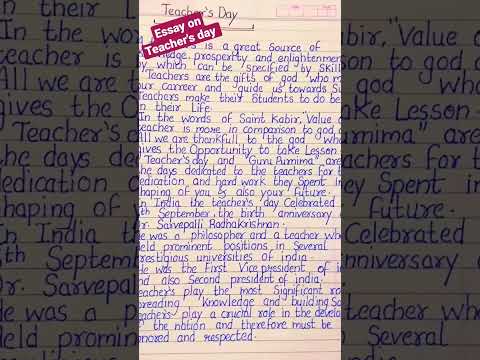 Teacher's Day
Essay on
Teacher's day
is a great Source of
prosperity and enlightenmen
which can be specified by skill
Teachers are the gifts of god who m
our carreer and guide us towards Su
Teachers make their Students to do be
in their Life.
In the words of Saint Kabir, "Value
teacher is more in comparison to god,
All we are thankfull to the god who
gives the Opportunity to take Lesson
Teacher's day and Guru Purnima" are
the days dedicated to the teachers for t
dedication and hard work they Spent in
shaping of you is also your future.
In India the teacher's day Celebrated
5th September, the birth anniversary
Dr. Sarvepalli Radhakrishnan.
He was a philosopher and a teacher who
held prominent positions in Several
prestigious universities of india
He was the First Vice president of in
and also Second president of india.
Teacher's play the most Significant ro
spreading Knowledge and building So
teachers play a crucial role in the develo
the nation and therefore must be
honored and respected.